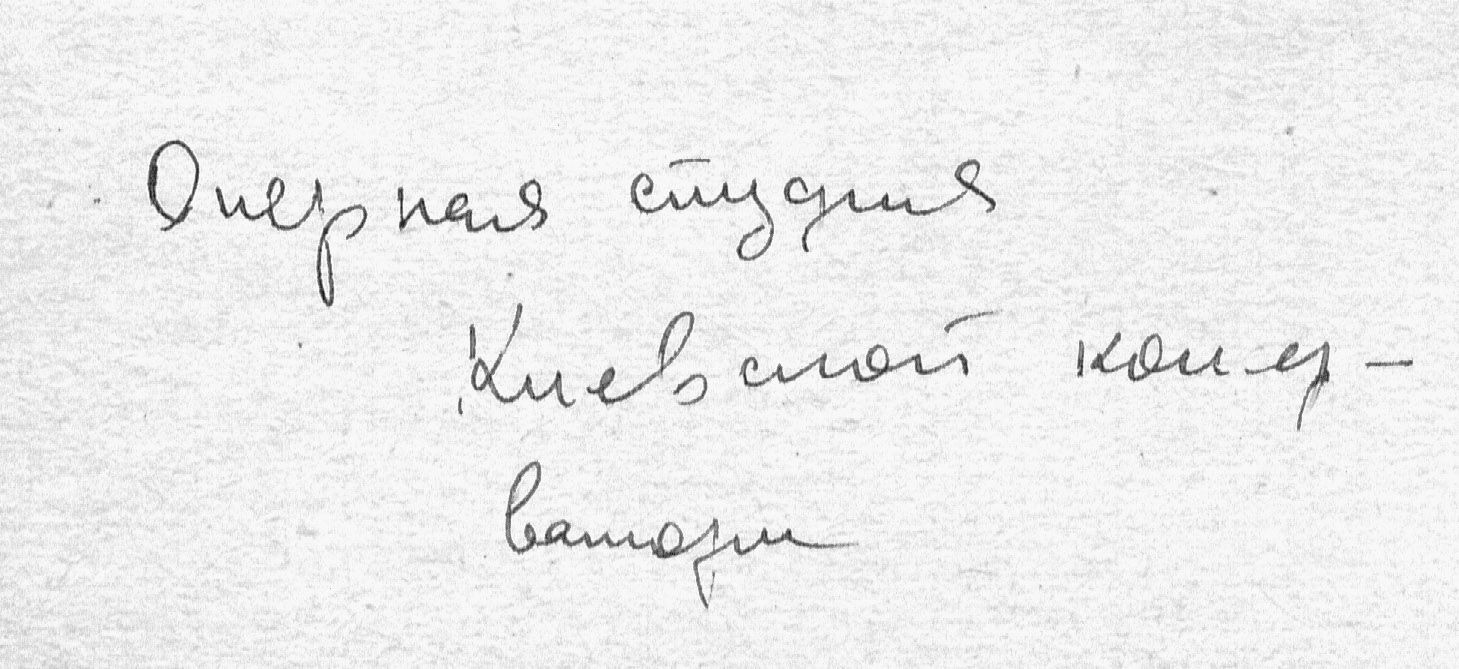 Оперная студия
Киевской консер-
ватории